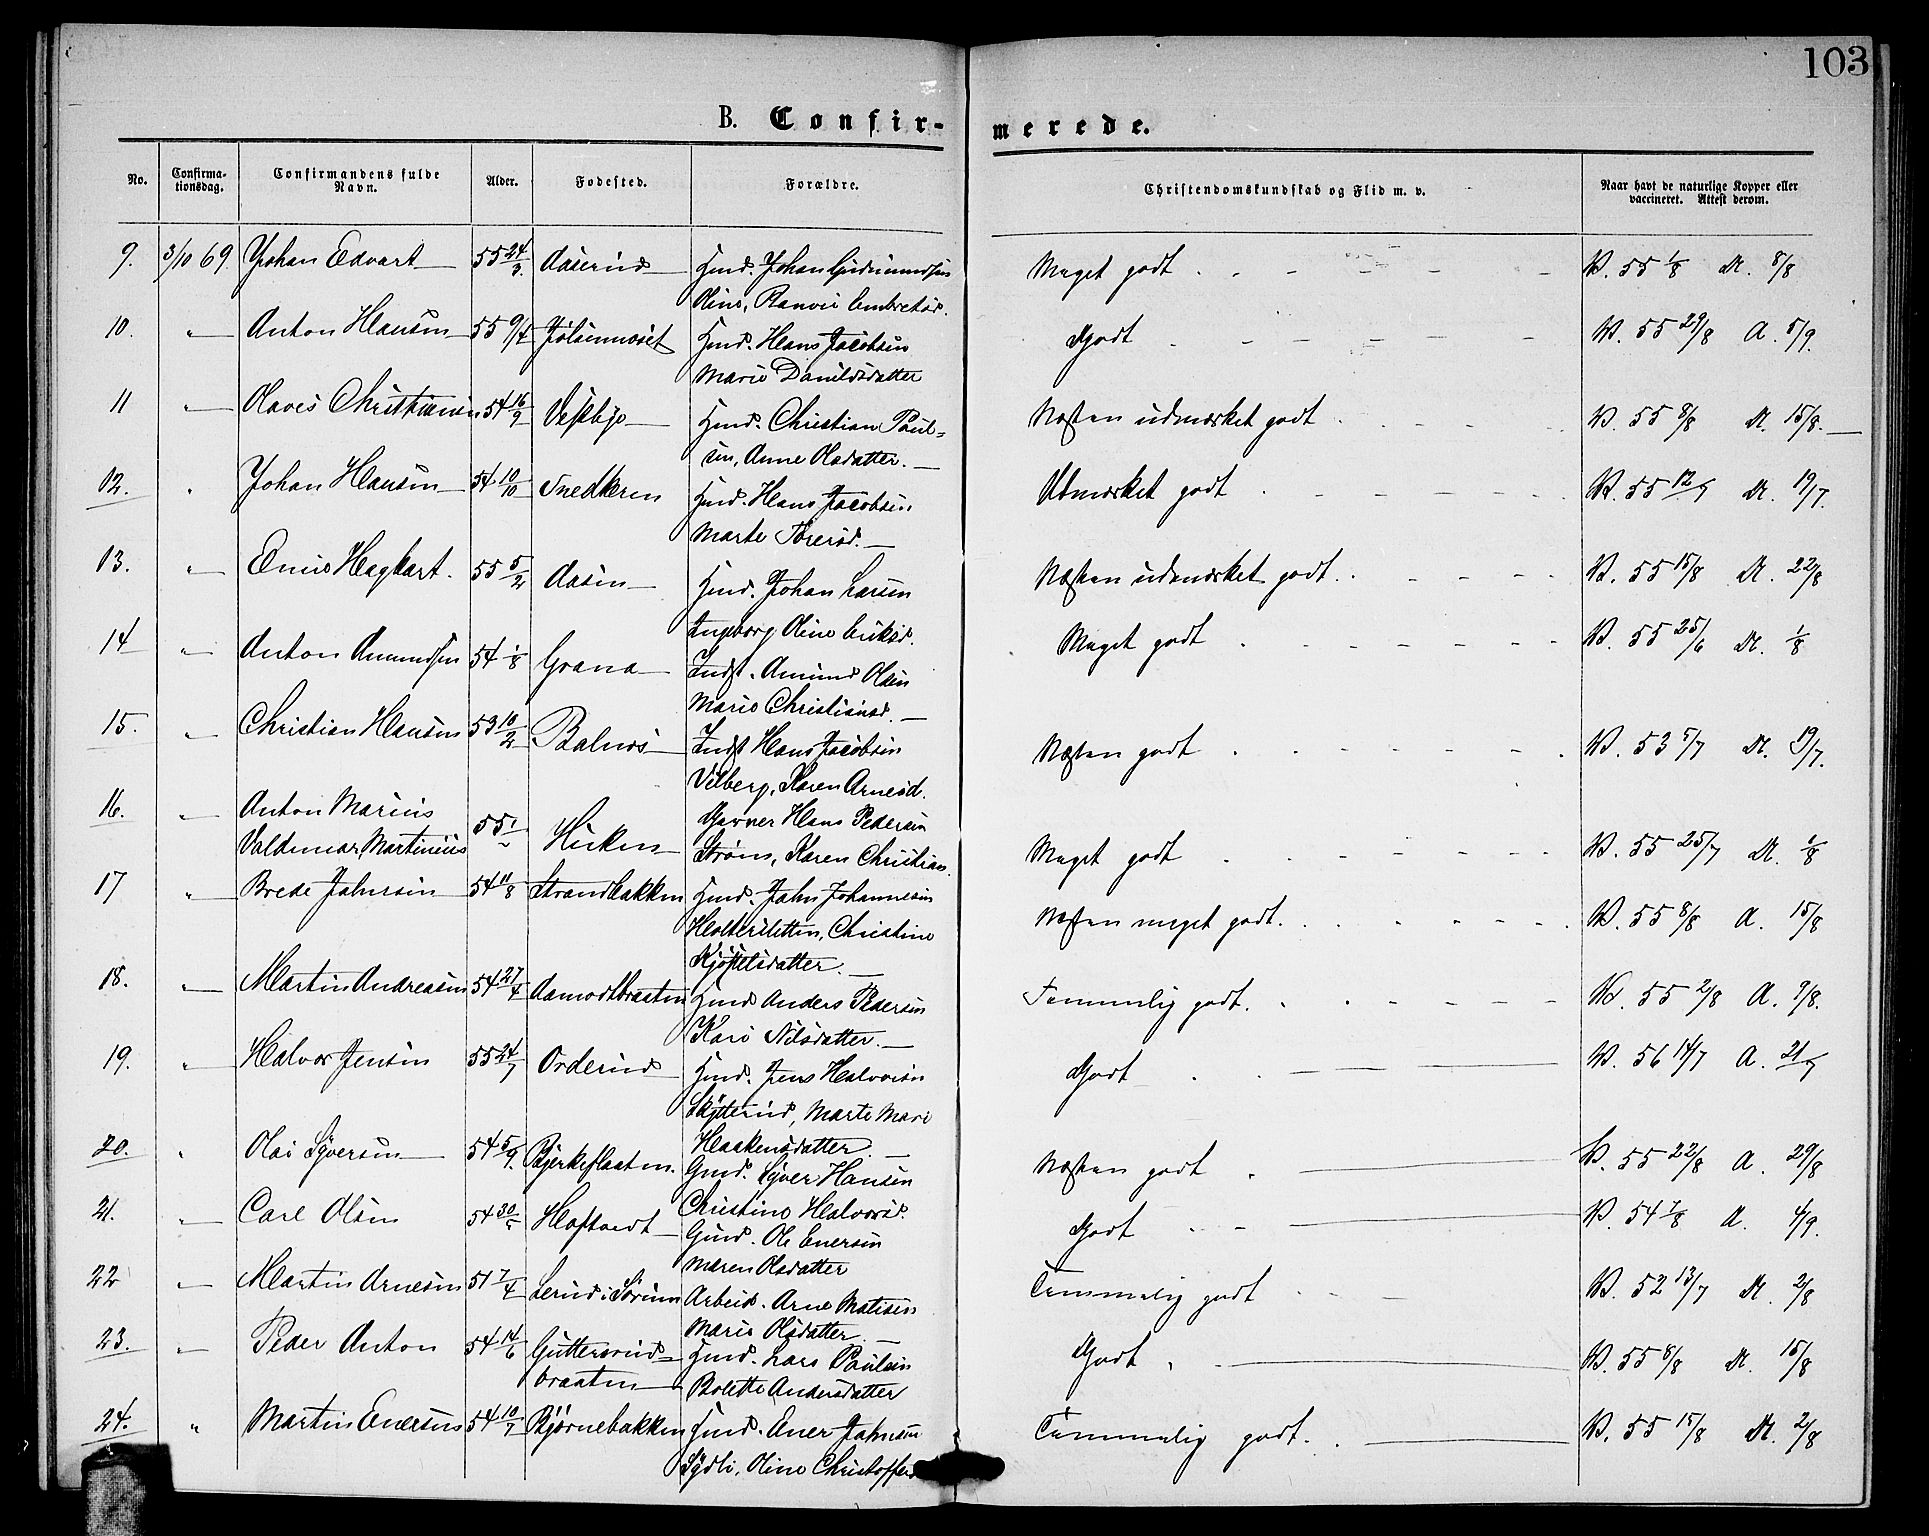 103
B. Confir-merede.
No. Confirma-tionsdag. Confirmandens fulde Navn. Alder. Fødested. Forældre. Christendomskundskab og Flid m. v. Naar havt de naturlige Kopper eller vaccineret. Attest derom.
9. 3/10 69. Johan Edvart 55 24/3. Aaserud Gmd. Johan Gudmundsen Meget godt V. 55 1/8 A. 8/8
Oline, Ranvei Embretsd.
10. " Anton Hansen 55 9/4 Jølsenmoset Gmd. Hans Jacobsen Godt V. 55 29/8 A. 5/9.
Marie Danielsdatter
11 " Olaves Christiansen 54 16/9 Vestbye Gmd. Christian Paul- Næsten udmærket godt V. 55 8/8 A. 15/8.
sen, Anne Olsdatter.
12. " Johan Hansen 54 10/10 Snedkeren Gmd. Hans Jacobsen Udmærket godt V. 55 12/7 A. 19/7.
Marte Torersd.
13. " Emil Hagbart. 55 5/2 Aasen Gmd. Johan Larsen Næsten udmærket godt. V. 55 15/8 A. 22/8
Ingeborg Oline Eriksd.
14 " Anton Amundsen 54 1/8 Grana Indst. Amund Olsen Meget godt V. 55 25/6 A. 1/8
Marie Christiansd.
15. " Christian Hansen 53 10/2 Balnes Indst Hans Jacobsen Næsten godt V. 53 5/7 A. 19/7.
Vilberg, Karen Arnesd.
16. " Anton Marius Garver Hans Pedersen
Valdemar, Martinius 55 1/ Hieken Strøm, Karen Christian. Meget godt V. 55 25/7 A. 1/8
17 " Brede Jahnsen 54 11/8 Strandbakken Gmd. Jahn Johannesen Næsten meget godt. V. 55 8/8 A. 15/8
Holtersletten, Christine
Kjøstelsdatter.
18. " Martin Andreasen 54 27/4 Aamodtbraaten Gmd Anders Pedersen Temmelig godt. V. 55 2/8 A. 9/8.
Kari Nilsdatter.
19. " Halvor Jensen 55 24/7 Orderud Gmd. Jens Halvorsen Godt V. 56 14/7 A. 21/7
Skytterud, Marte Mari
Haakensdatter.
20. " Olai Syversen 54 5/9. Bjerkeflaaten. Gmd. Syver Hansen Næsten godt V. 55 22/8 A. 29/8
Christine Halvorsd.
21. " Carl Olsen 54 30/5 Hoftvedt Gmd. Ole Enersen Godt V. 54 7/8 A. 4/9.
Maren Olsdatter
22 " Martin Arnesen 51 7/4 Lerud i Sørum Arbeid. Arne Matisen Temmelig godt V. 52 13/7 A. 2/8
Marie Olsdatter.
23. " Peder Anton 54 14/6 Guttersrud- Gmd. Lars Paulsen Godt V. 55 8/8 A. 15/8
braaten Bolette Andersdatter
24. " Martin Enersen 54 10/7 Bjørnebakken Gmd. Ener Jahnsen Temmelig godt. V. 55 15/8 A. 2/8
Sydli, Oline Christoffersd